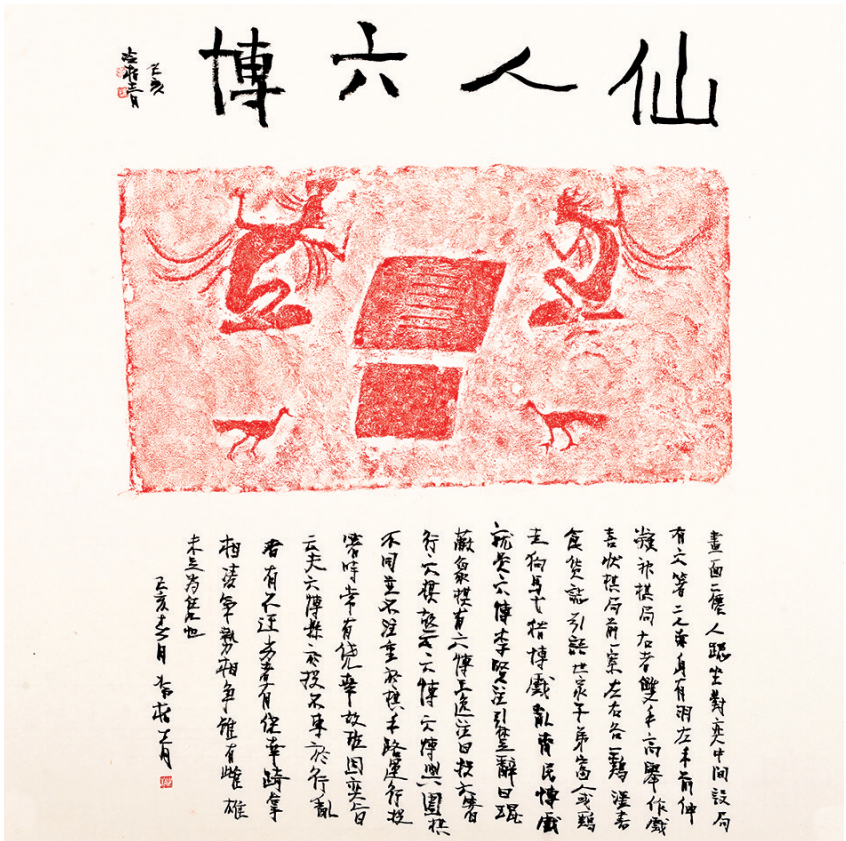 仙人六博
己亥
畫面二僊人跽坐對奕中間設局
有六箸二身有羽左前伸
凝神棋局右者雙手高舉作戲
喜狀棋局前一案左右各一鷄漢書
食貨誌引語世家子弟富人或鷄
走狗馬弋猎博戲亂齊民博戲
就是六博李賢注引楚辭曰琨
蔽象棋有六博王逸注曰投六箸
行六棋故云六博六博與圍棋
不同並不注重於棋术路運行投
箸時常有僥幸故班固奕旨
云夫六博懸於投不專於行亂
者有不遇劣者有僥幸踦拏
相凌氣勢相争雖有雌雄
未足为凭也
己亥月